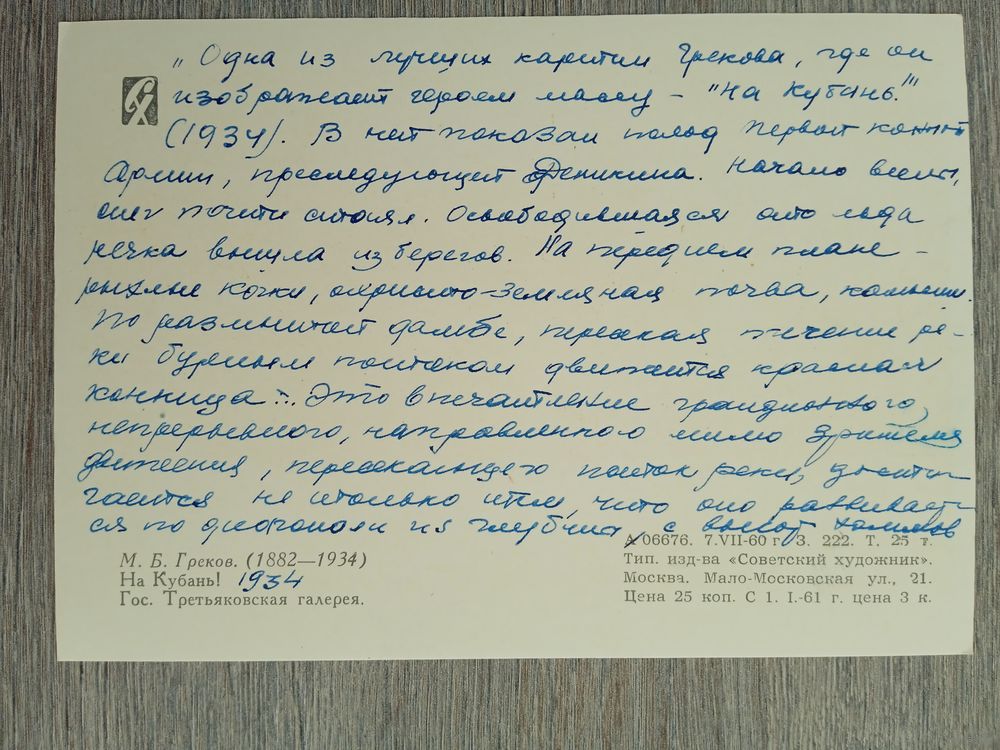 „Одна из лучших картин Грекова, где он
изображает героем массу – "На Кубань."
(1934). В ней показан поход первой конной
Армии, преследующей Деникина. Начало весны,
снег почти стаял. Освободившаяся ото льда
речка вышла из берегов. На переднем плане –
рыхлые кочки, охристо-земляная почва, камыши.
По размытой дамбе, пересекая течение ре-
ки бурным потоком движется красная
конница... Это впечатление грандиозного,
непрерывного, направленного мимо зрителя
движения, пересекающего поток реки, дости-
гается не только тем, что оно развивает-
ся по диагонали из глубины, с высот холмов
М. Б. Греков. (1882—1934)
На Кубань! 1934
Гос. Третьяковская галерея.
А 06676. 7.VII-60 г. З. 222. Т. 25 т.
Тип. изд-ва «Советский художник».
Москва. Мало-Московская ул., 21.
Цена 25 коп. С 1. I.-61 г. цена 3 к.